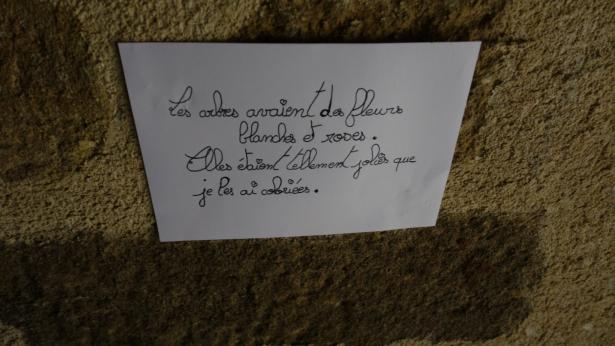 Les arbres avaient des fleurs
blanches et roses.
Elles étaient tellement jolies que
je les ai cobriées.